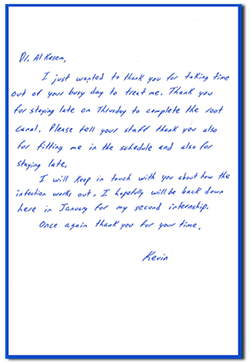 Dr. Al Kasem.
I just wanted to thank you for taking time
out of your busy day to treat me. Thank you
for staying late on Thursday to complete the root
canal. Please tell your staff thank you also
for fitting me in the schedule and also for
staying late.
I will keep in touch with you about how the
infection works out. I hopefully will be back down
here in January for my second internship.
Once again thank you for your time.
Kevin